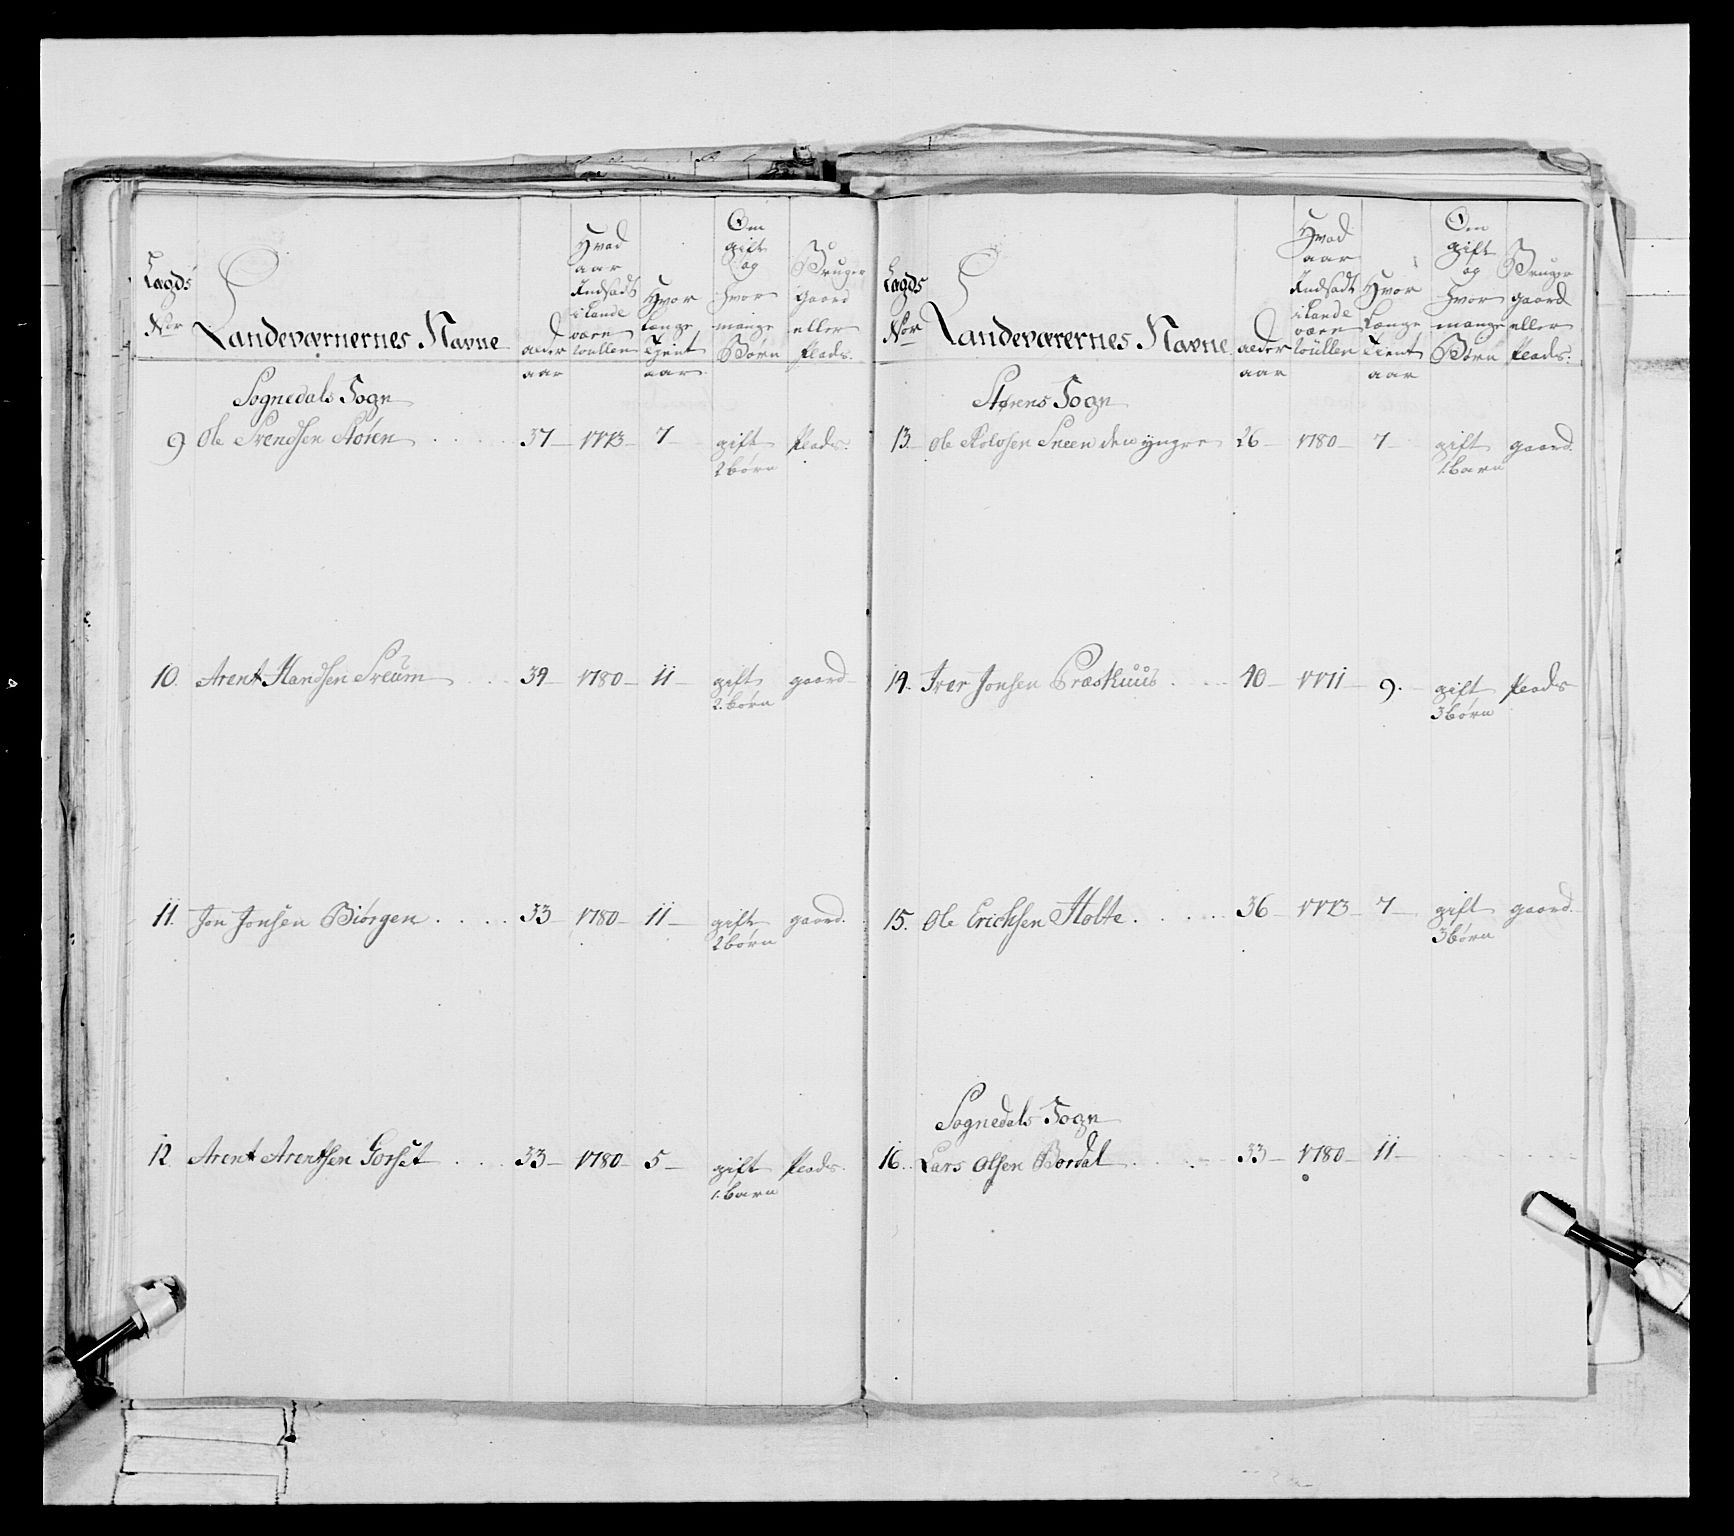 Lagds
No
Landeværnernes Navne
alder
aar
Hvad
aar
Indsadt
i Lande
værn
Hvor
Længe
Tient
aar
Om
gift
og
hvor
mange
Børn
Bruger
gaard
eller
Plads.
Sognedals Sogn
9 Ole Svendsen Støren 37 1773 7 gift Plads.
2 børn
10. Arent Handsen Sreum 34 1780 11 gift gaard
2. børn
11. Jon Jonsen Biørgen 33 1780 11 gift gaard.
2 børn
12. Arent Arentsen Gorset 33 1780 5 gift Plads.
1. barn
Lagds
No
Landeværernes Navne
alder
aar
Hvad
aar
Indsadt
i Lande
værn
Hvor
Længe
Tient
aar
Om
gift
og
hvor
mange
Børn
Bruger
gaard
eller
Plads.
Størens Sogn
13. Ole Rolosen Sneen den yngre 26 1780 7 gift gaard.
1. barn
14. Iver Jonsen Præsthuus 40 1771 9. gift Plads
3 børn
15. Ole Erichsen Holte 36 1773 7 gift gaard.
3 børn
Sognedals Sogn
16. Lars Olsen Bordal 33 1780 11